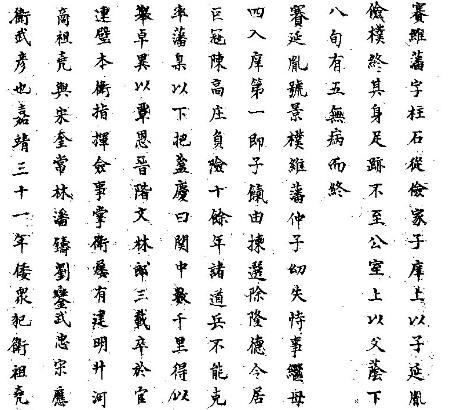 賽維藩字柱石從儉家子庠上以子延胤
儉樸終其身足跡不至公室上以父蔭下
八旬有五無病而終
賽延胤號景樸維藩仲子幼失恃事繼母
四入庠第一即子餼由揀選除隆德令居
巨寇陳高庄負險十餘年諸道兵不能克
率藩臬以下把盞慶曰関中數千里得以
舉卓異以覃恩晉階文林郎三載卒於官
連璧本衛指揮僉事掌衛屡有建明升河
高祖堯與宋奎常林潘鑄劉鑾武忠宗應
衛武彦也嘉靖三十一年倭衆犯衛祖堯